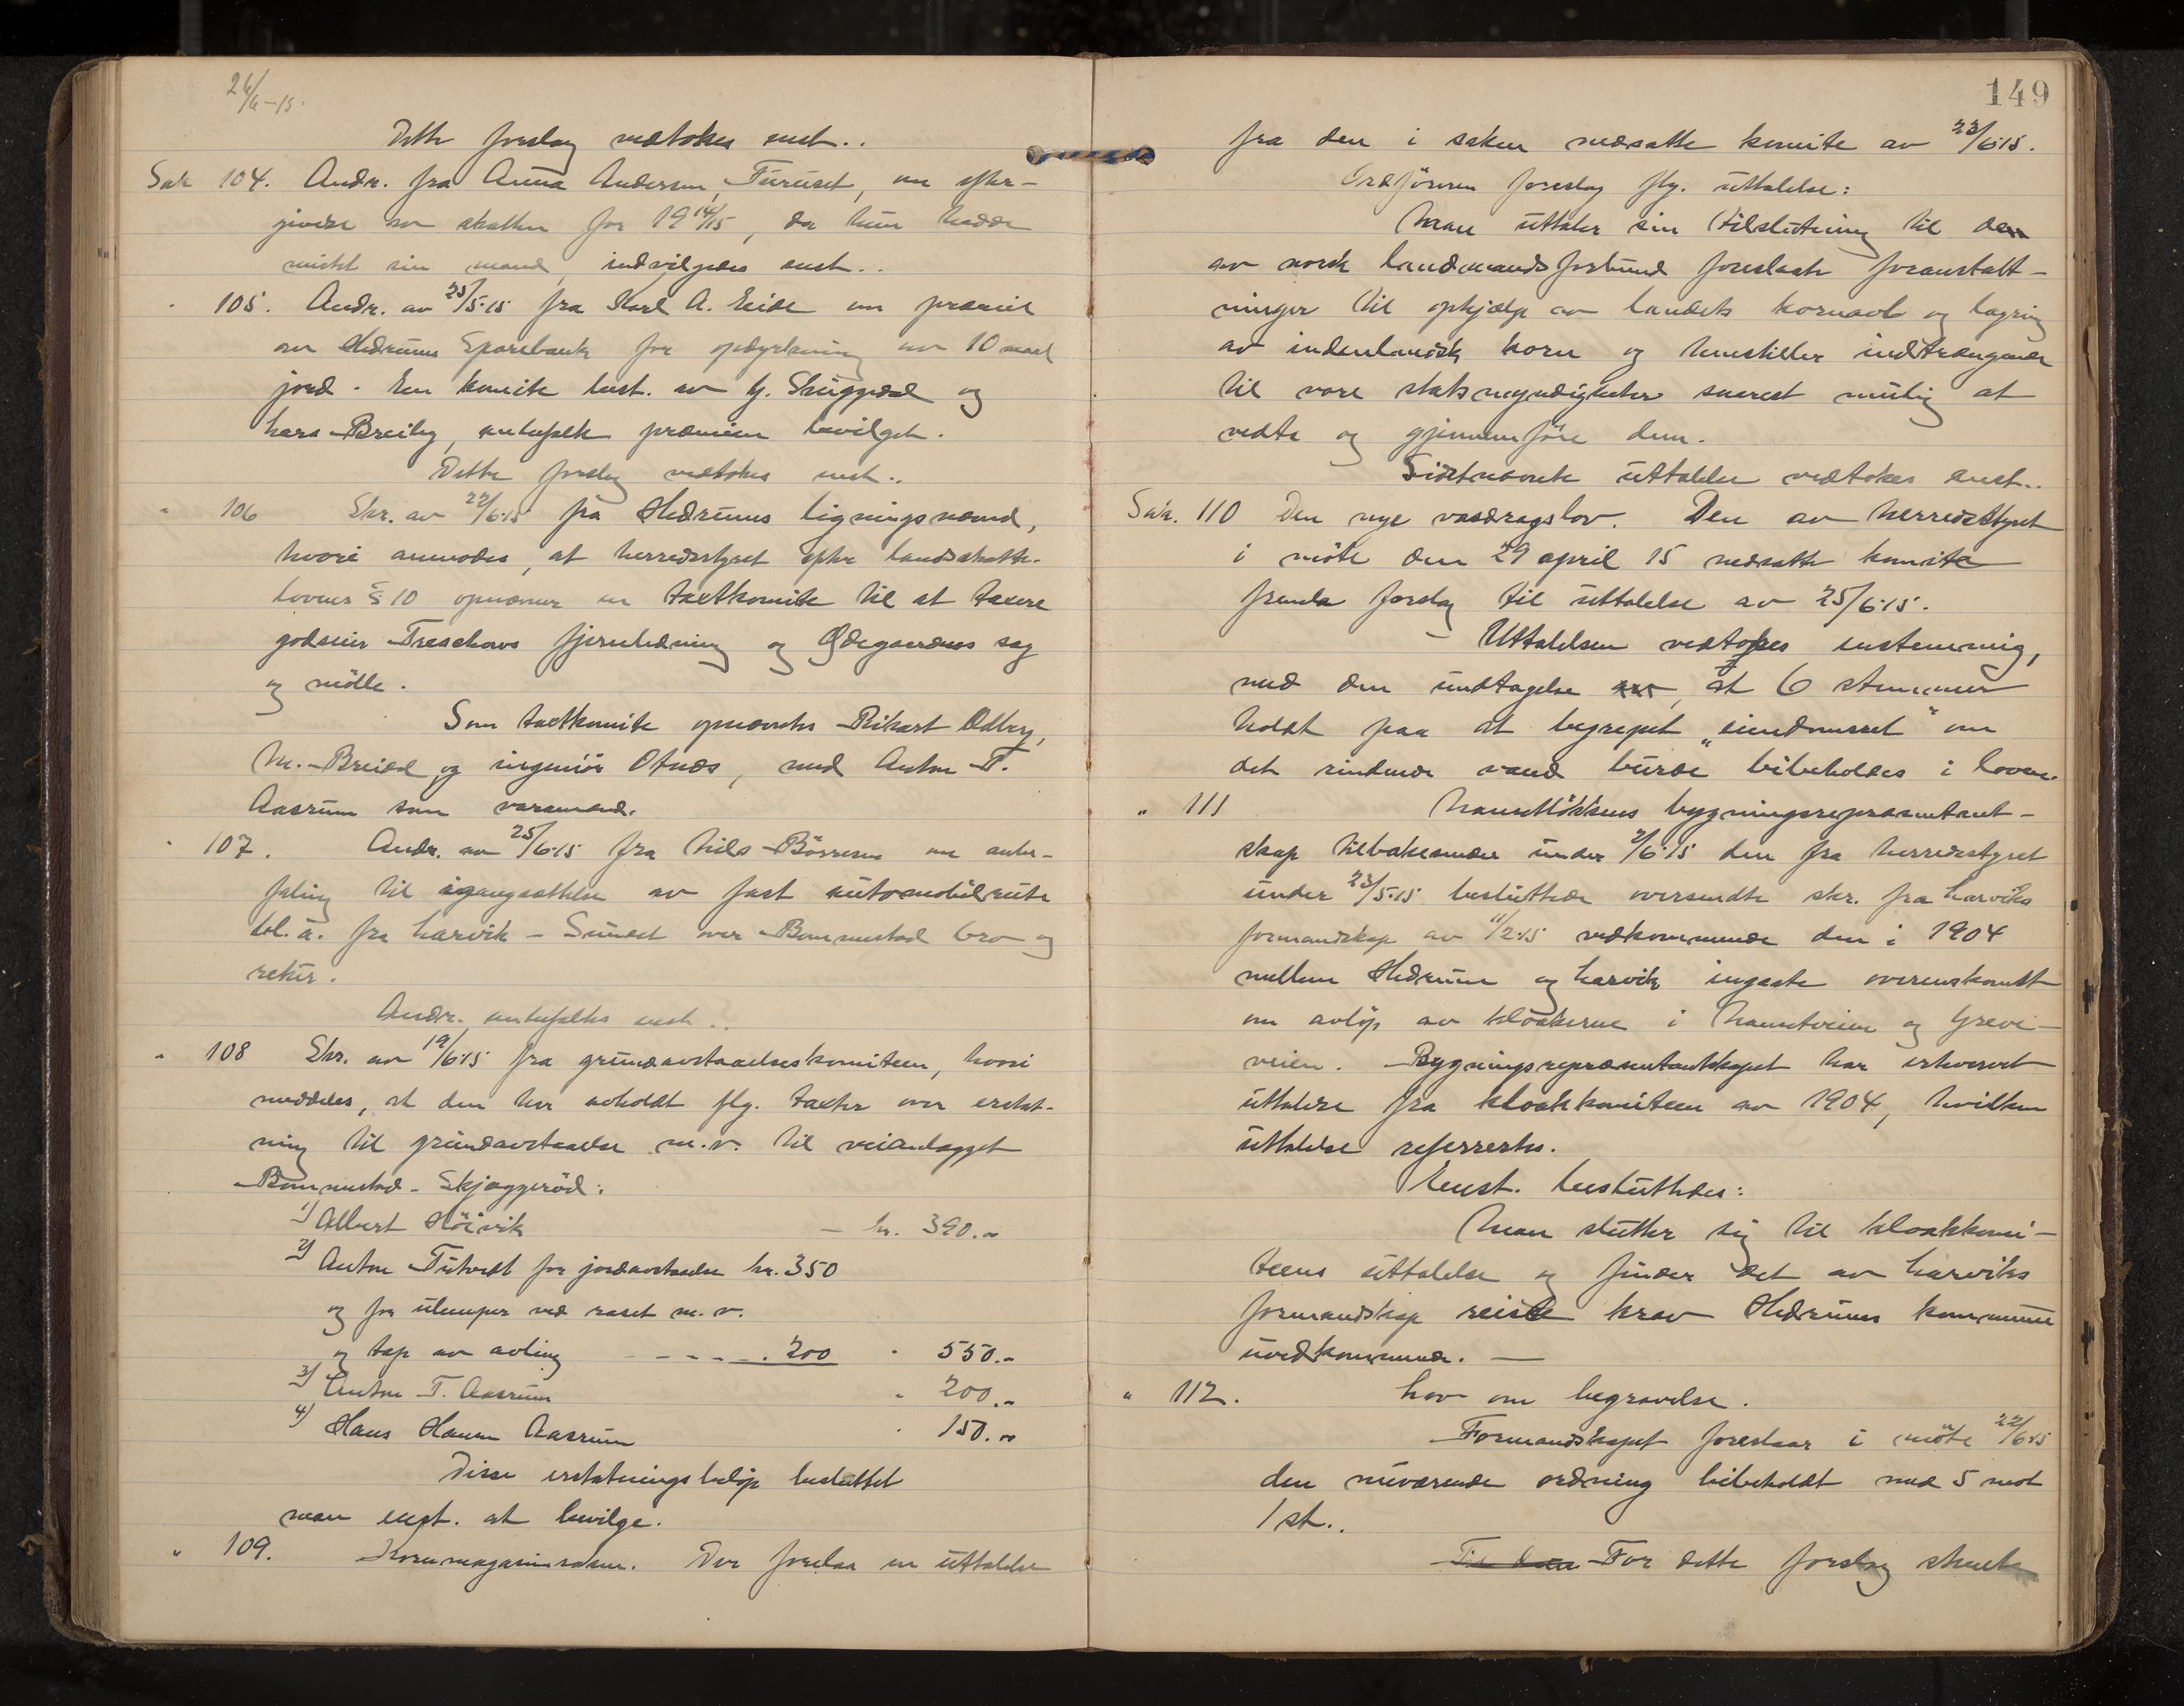 26/6-15.
Dette forslag vedtokes enst..
Sak 104. Andr. fra Anna Andersen, Furuset, om efter-
givelse av skatten for 1914/15, da hun hadde
mistet sin mand, indvilgedes enst..
" 105. Andr. av 25/5.15 fra Karl A. Eide om præmie
av Hedrums Sparebank for opdyrkning av 10 maal
jord. En komite best. av H. Skuggedal og
Lars Breiby, anbefalte præmien bevilget.
Dette forslag vedtokes enst..
" 106 Skr. av 22/6.15 fra Hedrums ligningsnemnd,
hvori anmodes, at herredsstyret efter landsskatte-
lovens § 10 opnævner en taxtkomite til at taxere
godseier Treschows fjernledning og Ødegaardens sag
og mölle.
Som taxtkomite opnævntes Rikart Odberg,
M. Breidal, og ingeniör Otnes, med Anton T.
Aasrum som varamand.
" 107. Andr. av 25/6.15 fra Nils Börresen om anbe-
faling til igangsættelse av fast automobilrute
bl. a. fra Larvik - Sundet over Bommestad bro og
retur.
Andr. anbefaltes enst..
" 108 Skr. av 19/6.15 fra grundavstaaelseskomiteen, hvori
meddeles, at den har avholdt flg. taxter over erstat-
ning til grundavstaaelse m.v. til veianlægget
Bommestad - Skjæggeröd:
1) Albert Höivik — kr. 390.00
2) Anton Tutvedt for jordavstaaelse kr. 350
og for ulemper ved raset m.v.
og tap av avling - - - . 200 " 550.-
3) Anton T. Aasrum " 200.-
4) Hans Hansen Aasrum " 150.00
Disse erstatningsbelöp besluttet
man enst. at bevilge.
" 109. Kornmagasinsaken. Der forelaa en uttalelse
149
fra den i saken nedsatte komite av 23/6.15.
Ordföreren foreslog flg. uttalelse:
Man uttaler sin tilslutning til den
av norsk landmandsforbund foreslaate foranstalt-
ninger til ophjælp av landets kornavl og lagring
av indenlandsk korn og henstiller indtrængende
til vore statsmyndigheter snarest mulig at
vedta og gjennemföre dem.
Sidstnævnte uttalelse vedtokes enst..
Sak. 110 Den nye vasdragslov. Den av herredsstyret
i möte den 29 april 15 nedsatte komite
fremla forslag til uttalelse av 25/6.15.
Uttalelsen vedtokes enstemmig,
med den undtagelse, at 6 stemmer
holdt paa at begrepet "eiendomsret" om
det rindende vand burde bibeholdes i loven.
" 111 Nanset-Lökkens bygningsrepræsentant-
skap tilbakesender under 2/6.15 den fra herredsstyret
under 23/5.15 besluttede oversendte skr. fra Larviks
formandskap av 11/2.15 vedkommende den i 1904
mellem Hedrum og Larvik ingaate overenskomst
om avlöp av kloakerne i Nansetveien og Greve-
veien. Bygningsrepræsentantskapet har erhvervet
uttalelse fra kloakkomiteen av 1904, hvilken
uttalelse refererertes.
Enst. besluttedes:
Man slutter sig til kloakkomi-
teens uttalelse og finder det av Larviks
formandskap reiste krav Hedrums kommune
uvedkommende. —
" 112. Lov om begravelse.
Formandskapet foreslaar i möte 22/6.15
den nuværende ordning bibeholdt med 5 mot
1 st..
For dette forslag stemte